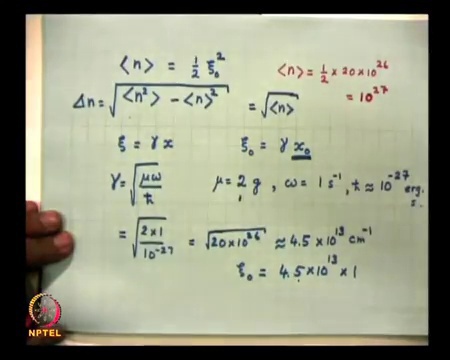 ⟨n⟩ = 1/2 ξ₀²
⟨n⟩ = 1/2 × 20×10²⁶
= 10²⁷
Δn = √(⟨n²⟩ − ⟨n⟩²) = √⟨n⟩
ξ = γ x    ξ₀ = γ x₀
γ = √(μω/ħ)    μ = 2 g , ω = 1 s⁻¹, ħ ≈ 10⁻²⁷ erg. s.
= √(2×1/10⁻²⁷) = √(20×10²⁶) ≈ 4.5×10¹³ cm⁻¹
ξ₀ = 4.5×10¹³ × 1
NPTEL